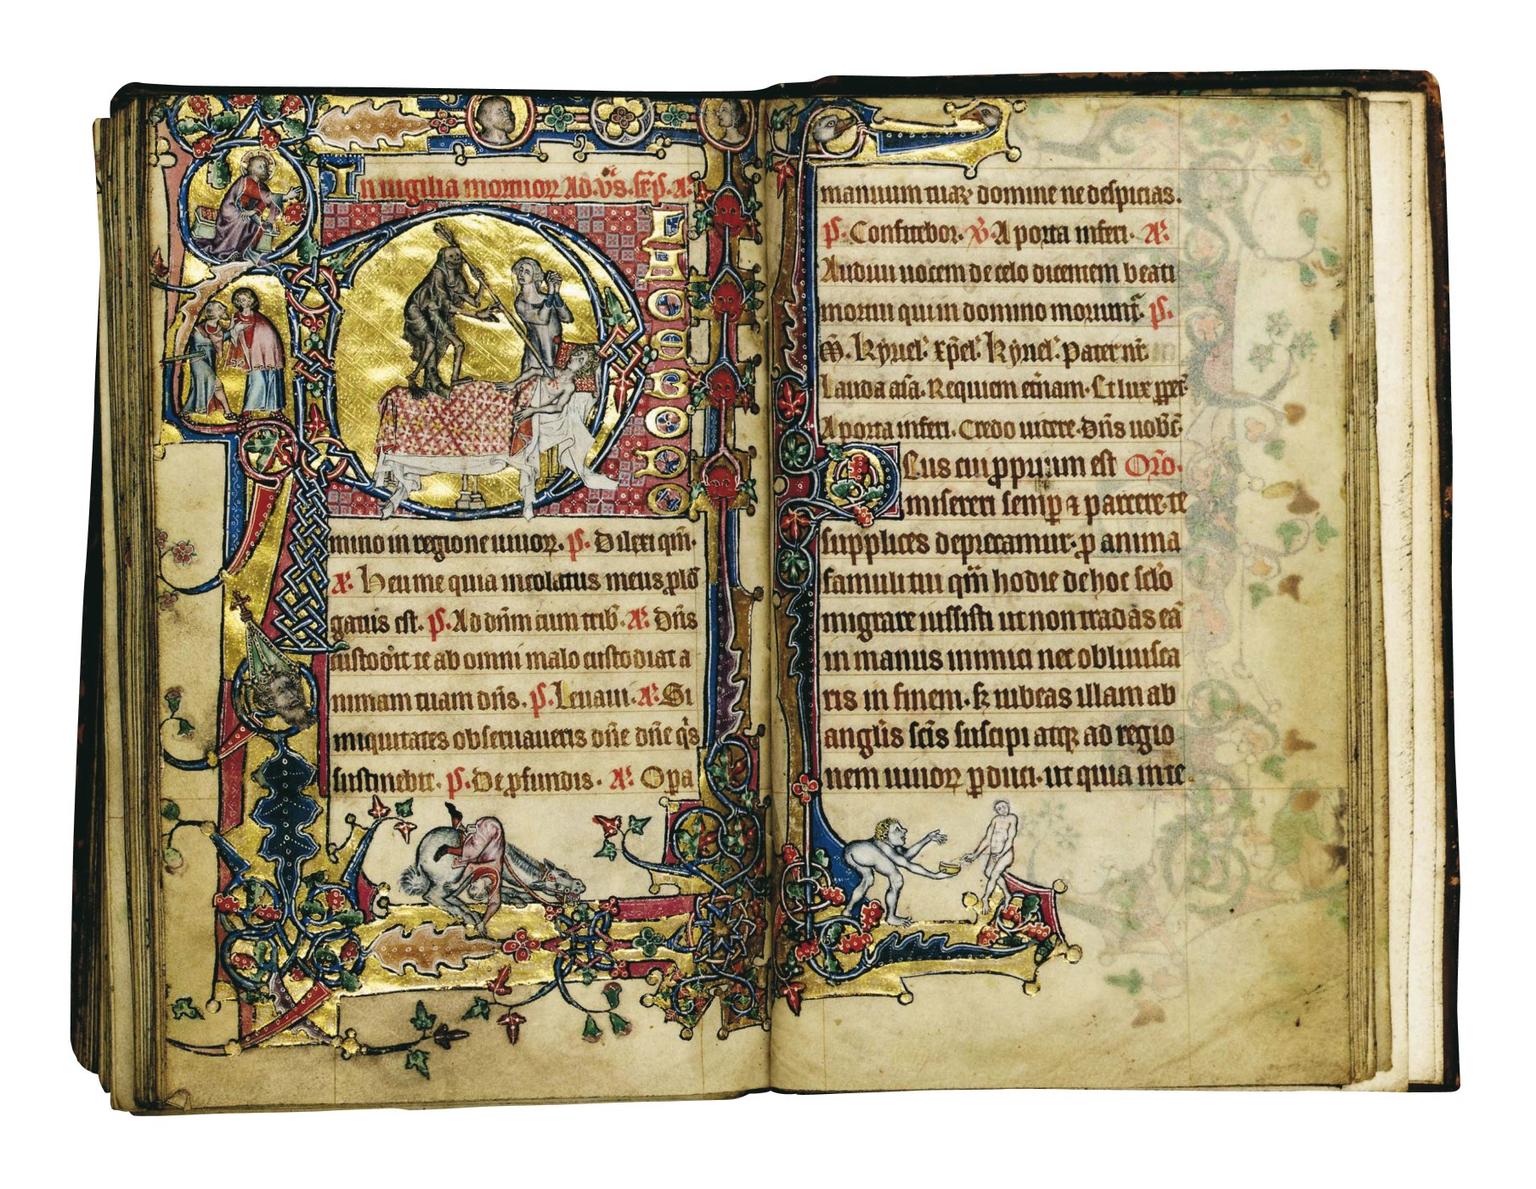 In uigilia mortuor Ad. vs. a
PLACEBO DO
mino in regione uiuor. p. Dilexi qm.
v. Heu me quia incolatus meus plo
gatus est. p. Ad dnm cum trib. A. Dns
custodit te ab omni malo custodiat a
nimam tuam dns. p. Leuaui. A. Si
iniquitates obseruaueris dne dne qs
sustinebit. p. De pfundis. A. Opa
manuum tuaz domine ne despicias.
p. Confitebor. v. A porta inferi. A.
Audiui uocem de celo dicentem beati
mortui qui in domino moriunt. p.
M. Kyriel. xpel. Kyriel. Pater nr.
Lauda aia. Requiem etnam. Et lux ppet
A porta inferi. Credo uidere. Dns uobc
Deus cui pprium est Oro.
misereri semp & parcere te
supplices deprecamur. p anima
famuli tui qm hodie de hoc sclo
migrare iussisti ut non tradas ea
in manus inimici nec obliuisca
ris in finem. sz iubeas illam ab
anglis scis suscipi atqz ad regio
nem uiuor pduci. ut quia in te